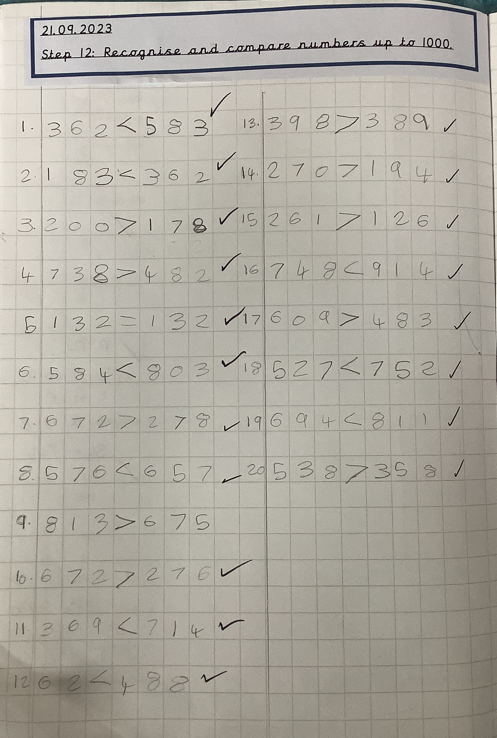 21.09.2023
Step 12: Recognise and compare numbers up to 1000.
1. 362 < 583 ✓
2. 183 < 362 ✓
3. 200 > 178 ✓
4 738 > 482 ✓
5 132 = 132 ✓
6. 584 < 803 ✓
7. 672 > 278 ✓
8. 576 < 657 ✓
9. 813 > 675
10. 672 > 276 ✓
11 369 < 714 ✓
12 62 < 488 ✓
13. 398 > 389 ✓
14. 270 > 194 ✓
15 261 > 126 ✓
16 748 < 914 ✓
17 609 > 483 ✓
18 527 < 752 ✓
19 694 < 811 ✓
20 538 > 358 ✓